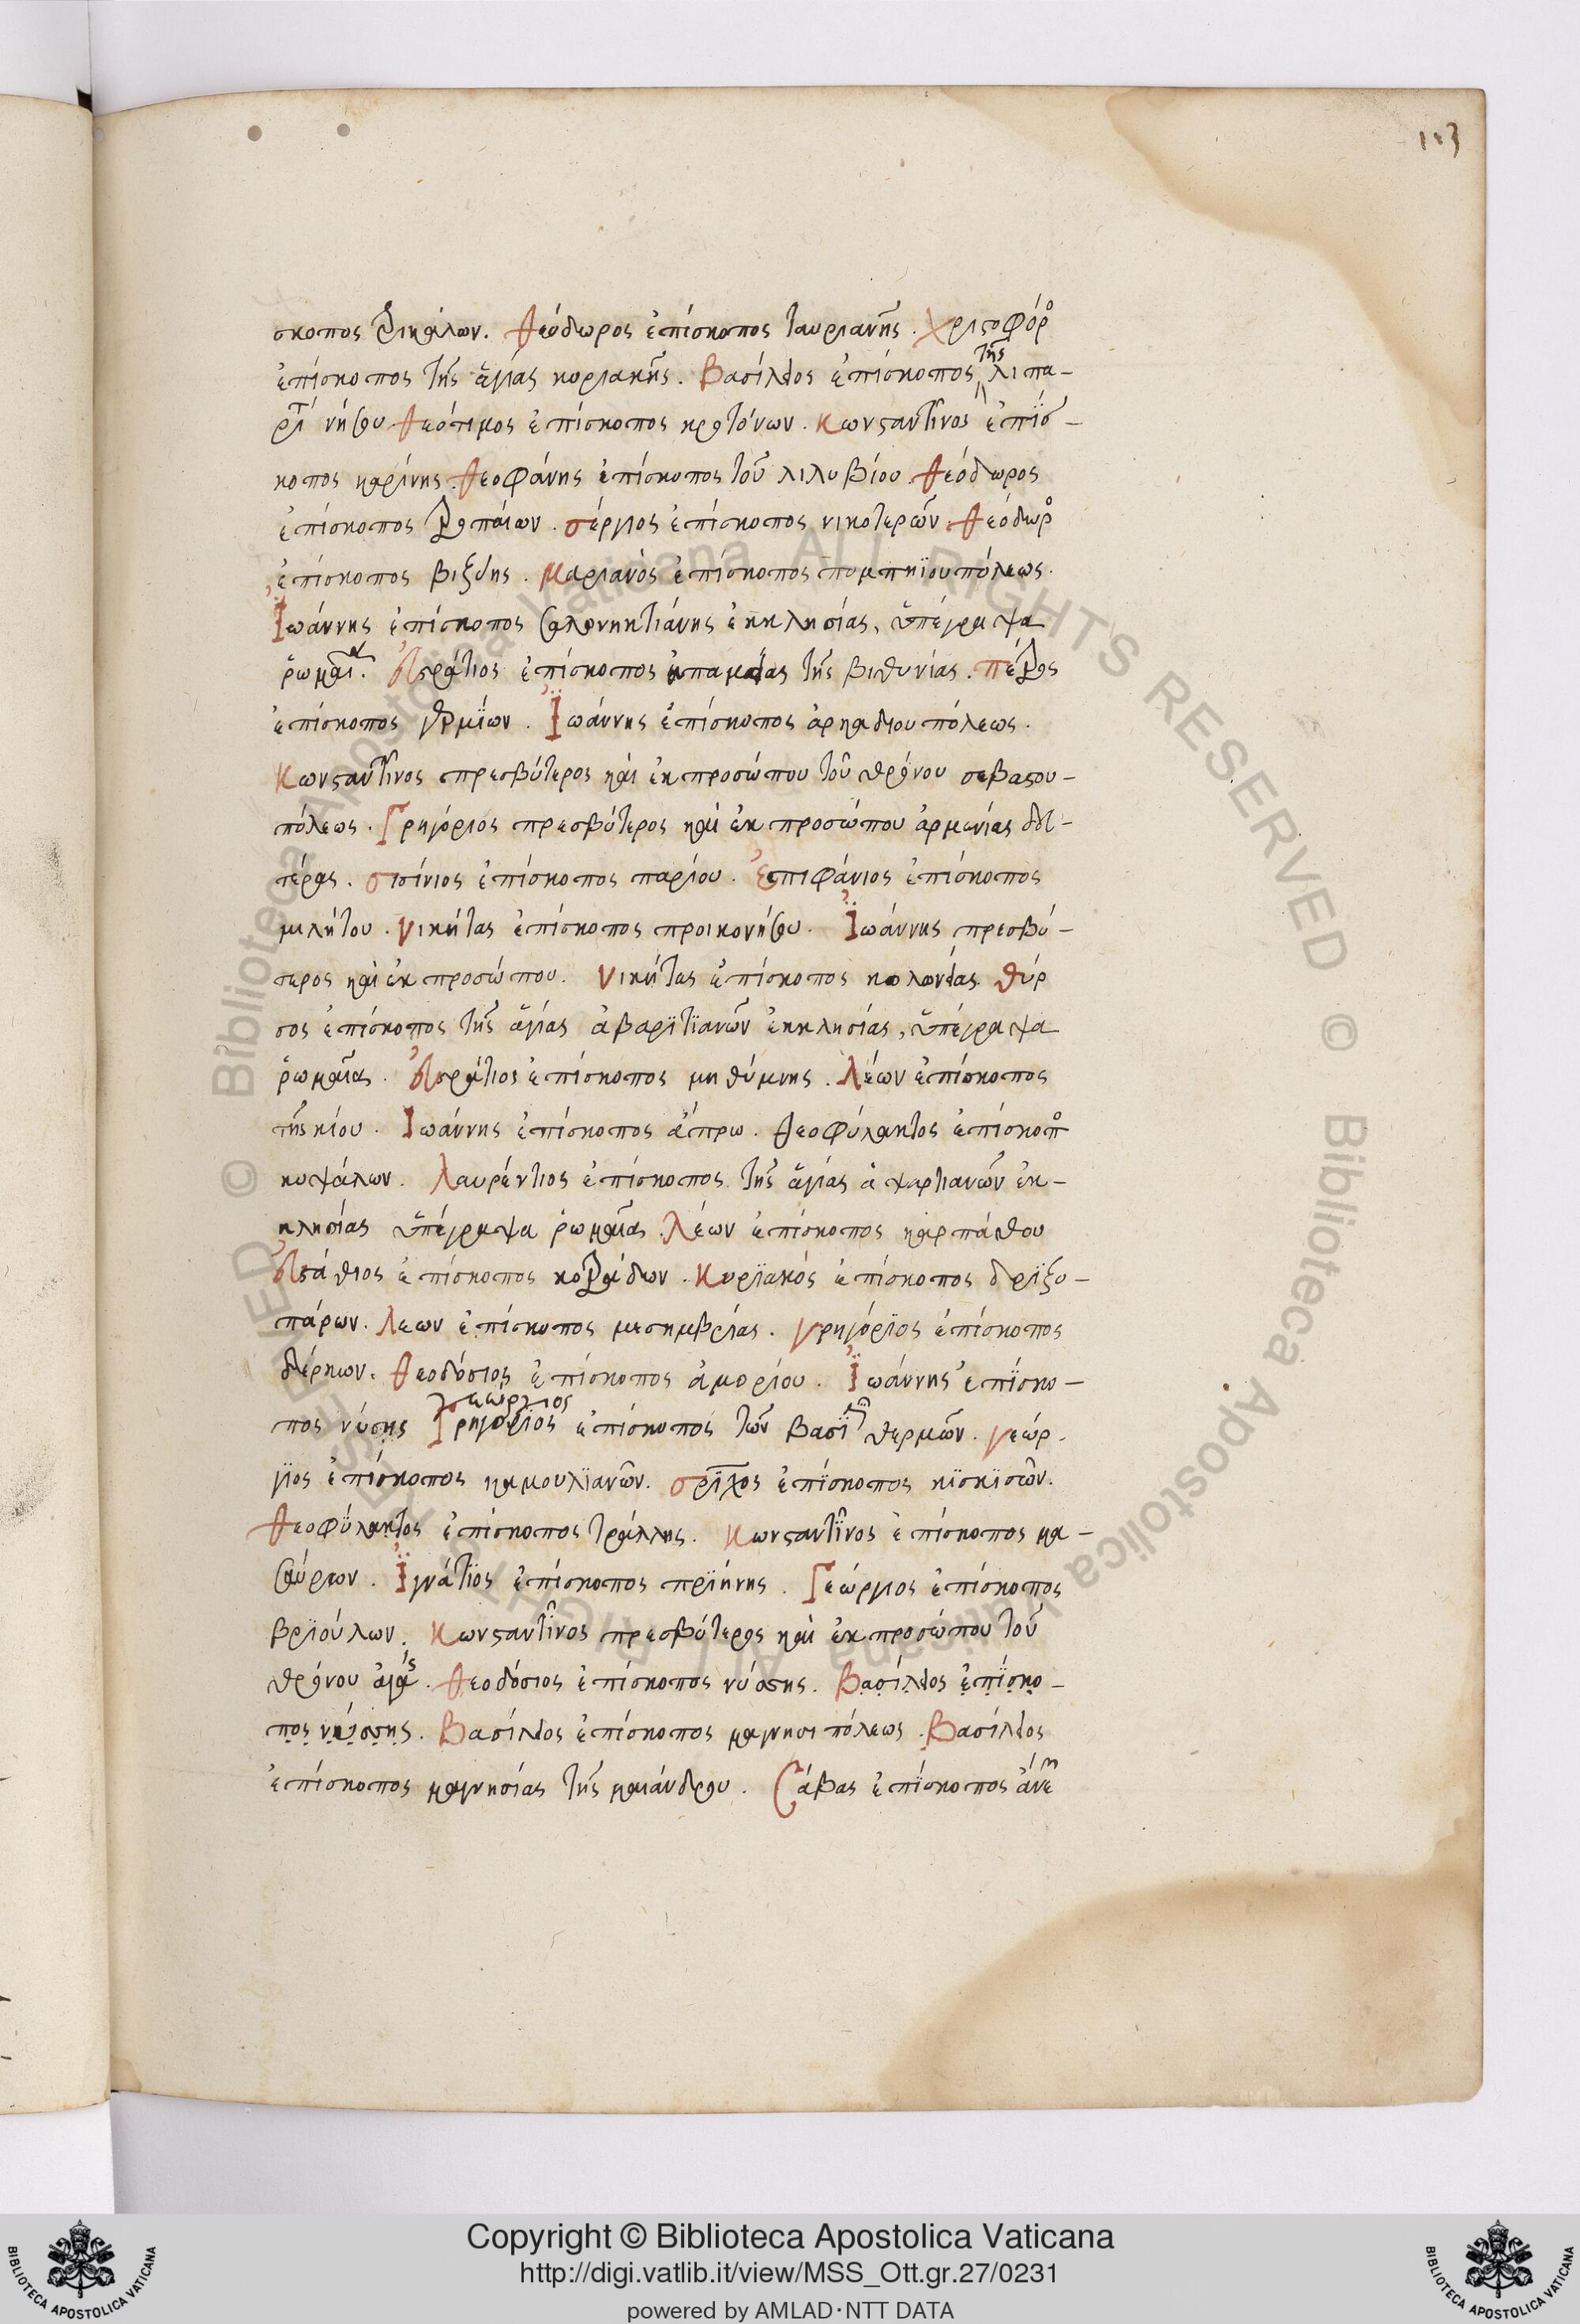 113
σκοπος τρικάλων. Θεόδωρος ἐπίσκοπος ταυριανῆς. Χριστοφόρος
ἐπίσκοπος τῆς ἁγίας κυριακῆς. Βασίλειος ἐπίσκοπος τῆς λιπα-
ρι νήσου Θεότιμος ἐπίσκοπος κροτόνων. Κωνσταντῖνος ἐπίσ-
κοπος καρίνης. Θεοφάνης ἐπίσκοπος τοῦ λιλυβίου. Θεόδωρος
ἐπίσκοπος τροπαίων. Σέργιος ἐπίσκοπος νικοτερῶν. Θεόδωρος
ἐπίσκοπος βιξύης. Μαριανὸς ἐπίσκοπος πομπηϊουπόλεως.
Ἰωάννης ἐπίσκοπος σαλονηκτιάνης ἐκκλησίας, ὑπέγραψα
ῥωμαϊ. Εὐστράτιος ἐπίσκοπος ἀπαμείας τῆς βιθυνίας. Πέτρος
ἐπίσκοπος γερμίων. Ἰωάννης ἐπίσκοπος ἀρκαδιουπόλεως.
Κωνσταντῖνος πρεσβύτερος καὶ ἐκ προσώπου τοῦ θρόνου σεβαστου-
πόλεως. Γρηγόριος πρεσβύτερος καὶ ἐκ προσώπου ἀρμενίας δευ-
τέρας. Σισίνιος ἐπίσκοπος παρίου. Ἐπιφάνιος ἐπίσκοπος
μιλήτου. Νικήτας ἐπίσκοπος προικονήσου. Ἰωάννης πρεσβύ-
τερος καὶ ἐκ προσώπου. Νικήτας ἐπίσκοπος κολωνείας. Θύρ
σος ἐπίσκοπος τῆς ἁγίας ἀβαριτϊανῶν ἐκκλησίας, ὑπέγραψα
ῥωμαῖας. Εὐστράτιος ἐπίσκοπος μηθύμνης. Λέων ἐπίσκοπος
τῆς κίου. Ἰωάννης ἐπίσκοπος ἄπρω. Θεοφύλακτος ἐπίσκοπος
κυψάλων. Λαυρέντιος ἐπίσκοπος τῆς ἁγίας ἀψαρτιανῶν ἐκ-
κλησίας ὑπέγραψα ῥωμαῖας. Λέων ἐπίσκοπος καρπάθου
Εὐστάθιος ἐπίσκοπος κοτράδων. Κυριακός ἐπίσκοπος δριξυ-
πάρων. Λεων ἐπίσκοπος μεσημβρίας. Γρηγόριος ἐπίσκοπος
δέρκων. Θεοδόσιος ἐπίσκοπος ἀμορίου. Ἰωάννης ἐπίσκο-
πος νύσης Γρηγόριος Γεώργιος ἐπίσκοπος τῶν βασι θερμῶν. Γεώρ-
γϊος ἐπίσκοπος καμουλϊανῶν. ἐπίσκοπος κϊσκϊσῶν.
Θεοφύλακτος ἐπίσκοπος τράλλης. Κωνσταντῖνος ἐπίσκοπος μα-
σαύρων. Ἰγνάτϊος ἐπίσκοπος πρϊήνης. Γεώργιος ἐπίσκοπος
βρϊούλων. Κωνσταντῖνος πρεσβύτερος καὶ ἐκ προσώπου τοῦ
θρόνου ἀγάς. Θεοδόσιος ἐπίσκοπος νύσσης. Βασίλειος ἐπίσκο-
πος νύσσης. Βασίλειος ἐπίσκοπος μαγνησιπόλεως. Βασίλειος
ἐπίσκοπος μαγνησίας τῆς μαιάνδρου. Σάβας ἐπίσκοπος ἀνέ
Copyright © Biblioteca Apostolica Vaticana
http://digi.vatlib.it/view/MSS_Ott.gr.27/0231
powered by AMLAD·NTT DATA
© Biblioteca Apostolica Vaticana ALL RIGHTS RESERVED
BIBLIOTECA APOSTOLICA VATICANA
BIBLIOTECA APOSTOLICA VATICANA